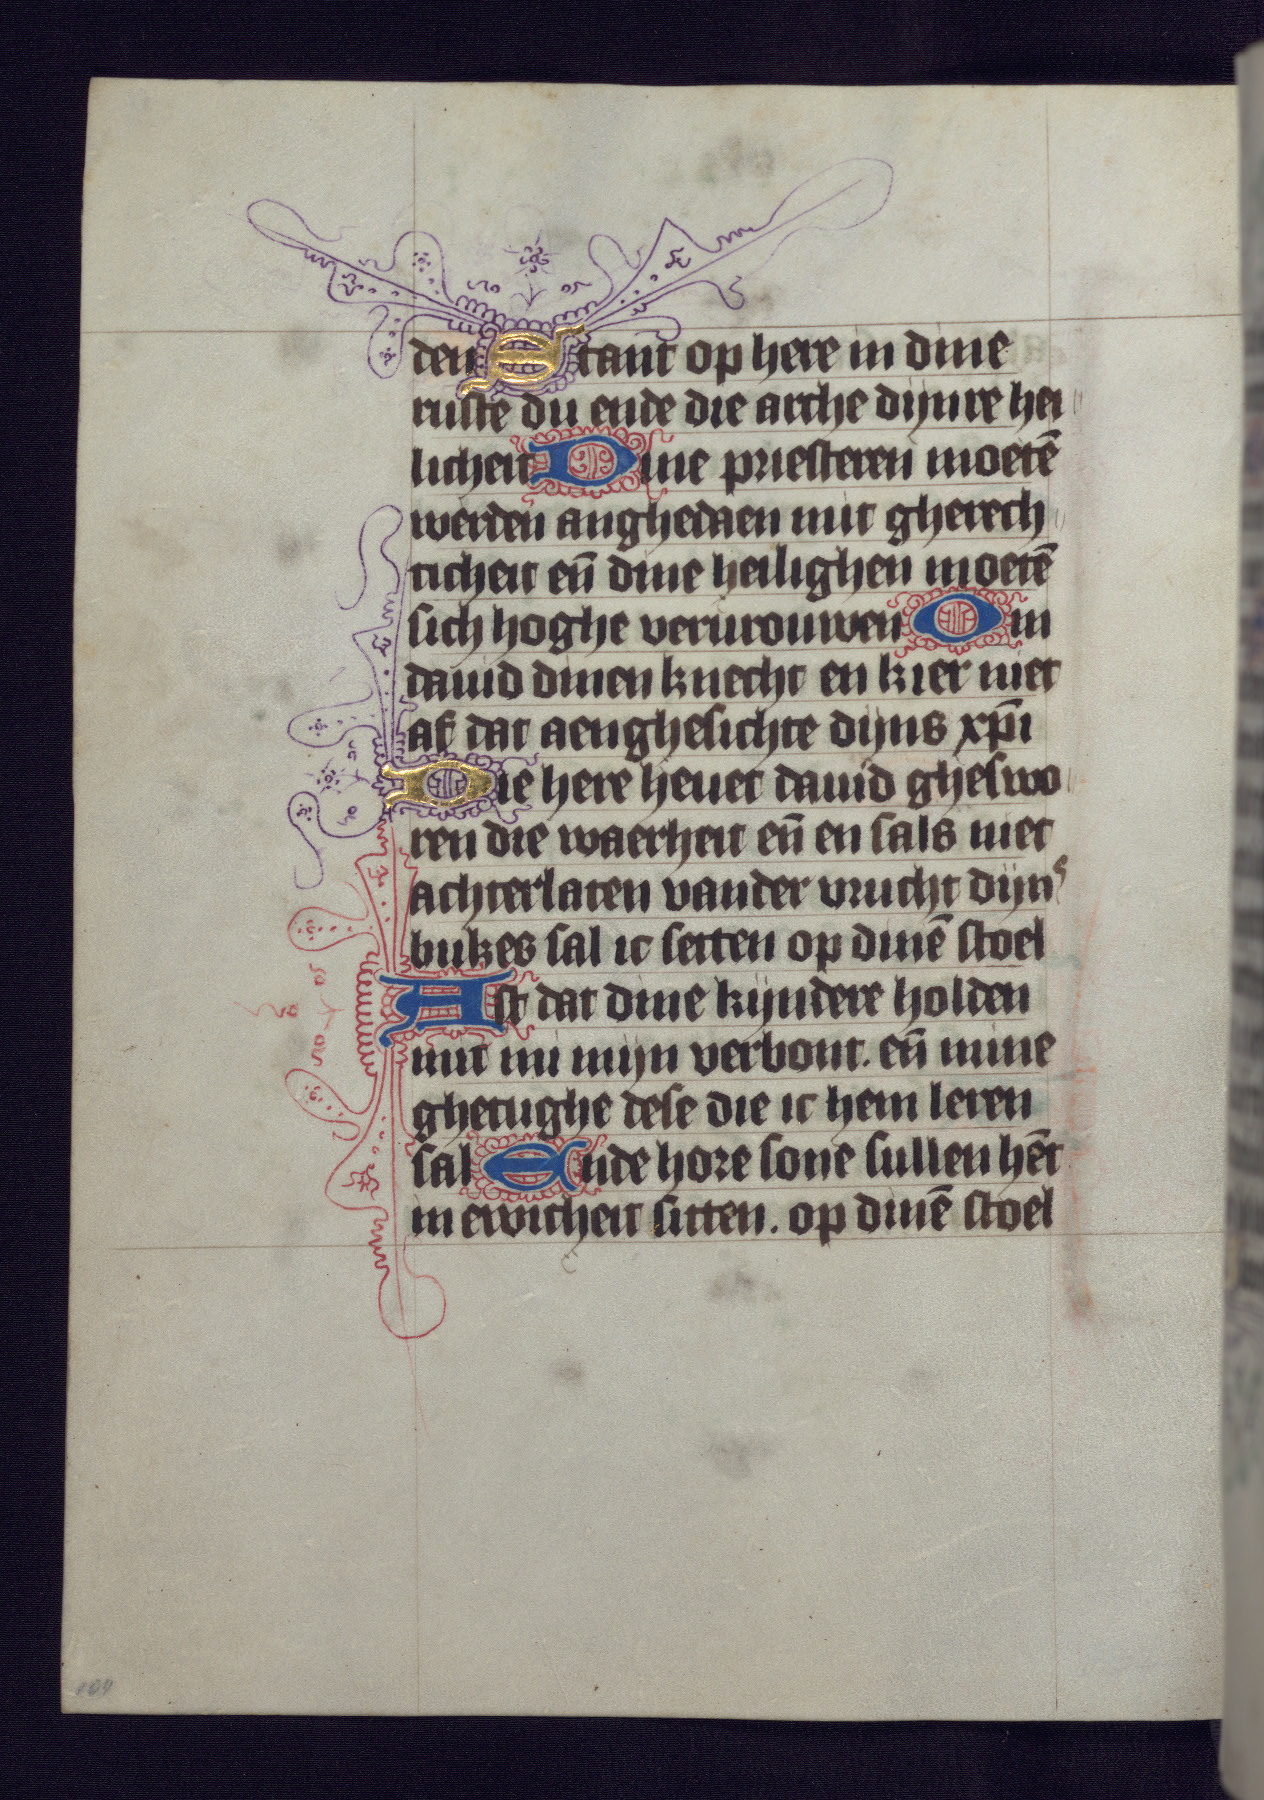 den Stant op here in dine
ruste du ende die arche dijnre hei
licheit Dine priesteren moetē
werden anghedaen mit gherech
ticheit en̄ dine heilighen moetē
sich hoghe vervrouwen Om
dauid dinen knecht en kier niet
af dat aenghesichte dijns xp̄i
Die here heuet dauid gheswo
ren die waerheit en̄ en sals niet
achterlaten vander vrucht dijns
bukes sal ic setten op dinē stoel
Ast dat dine kijndere holden
mit mi mijn verbont. en̄ mine
ghetughe dese die ic hem leren
sal Ende hore sone sullen hēt
in ewicheit sitten. op dinē stoel
104